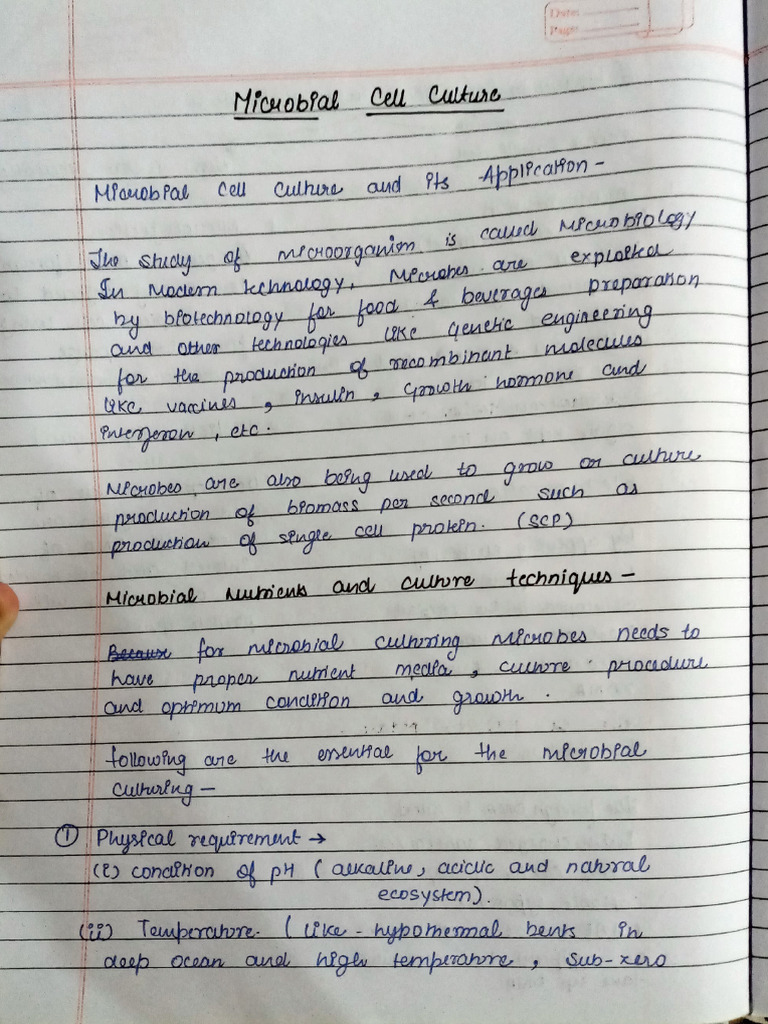 Date:
Page:
Microbial Cell Culture
Microbial Cell Culture and its Application -
The study of microorganism is called Microbiology
In Modern technology, Microbes are exploited
by biotechnology for food & beverages preparation
and other technologies like Genetic engineering
for the production of recombinant molecules
like vaccines, insulin, Growth hormone and
interferon, etc.
Microbes are also being used to grow or culture
production of biomass per second such as
production of single cell protein. (SCP)
Microbial Nutrients and culture techniques -
Because for microbial culturing microbes needs to
have proper nutrient media, culture procedure
and optimum condition and growth.
following are the essential for the microbial
culturing -
① Physical requirement →
(i) condition of pH (alkaline, acidic and natural
ecosystem).
(ii) Temperature. (like - hypothermal bents in
deep ocean and high temperature, sub-xero